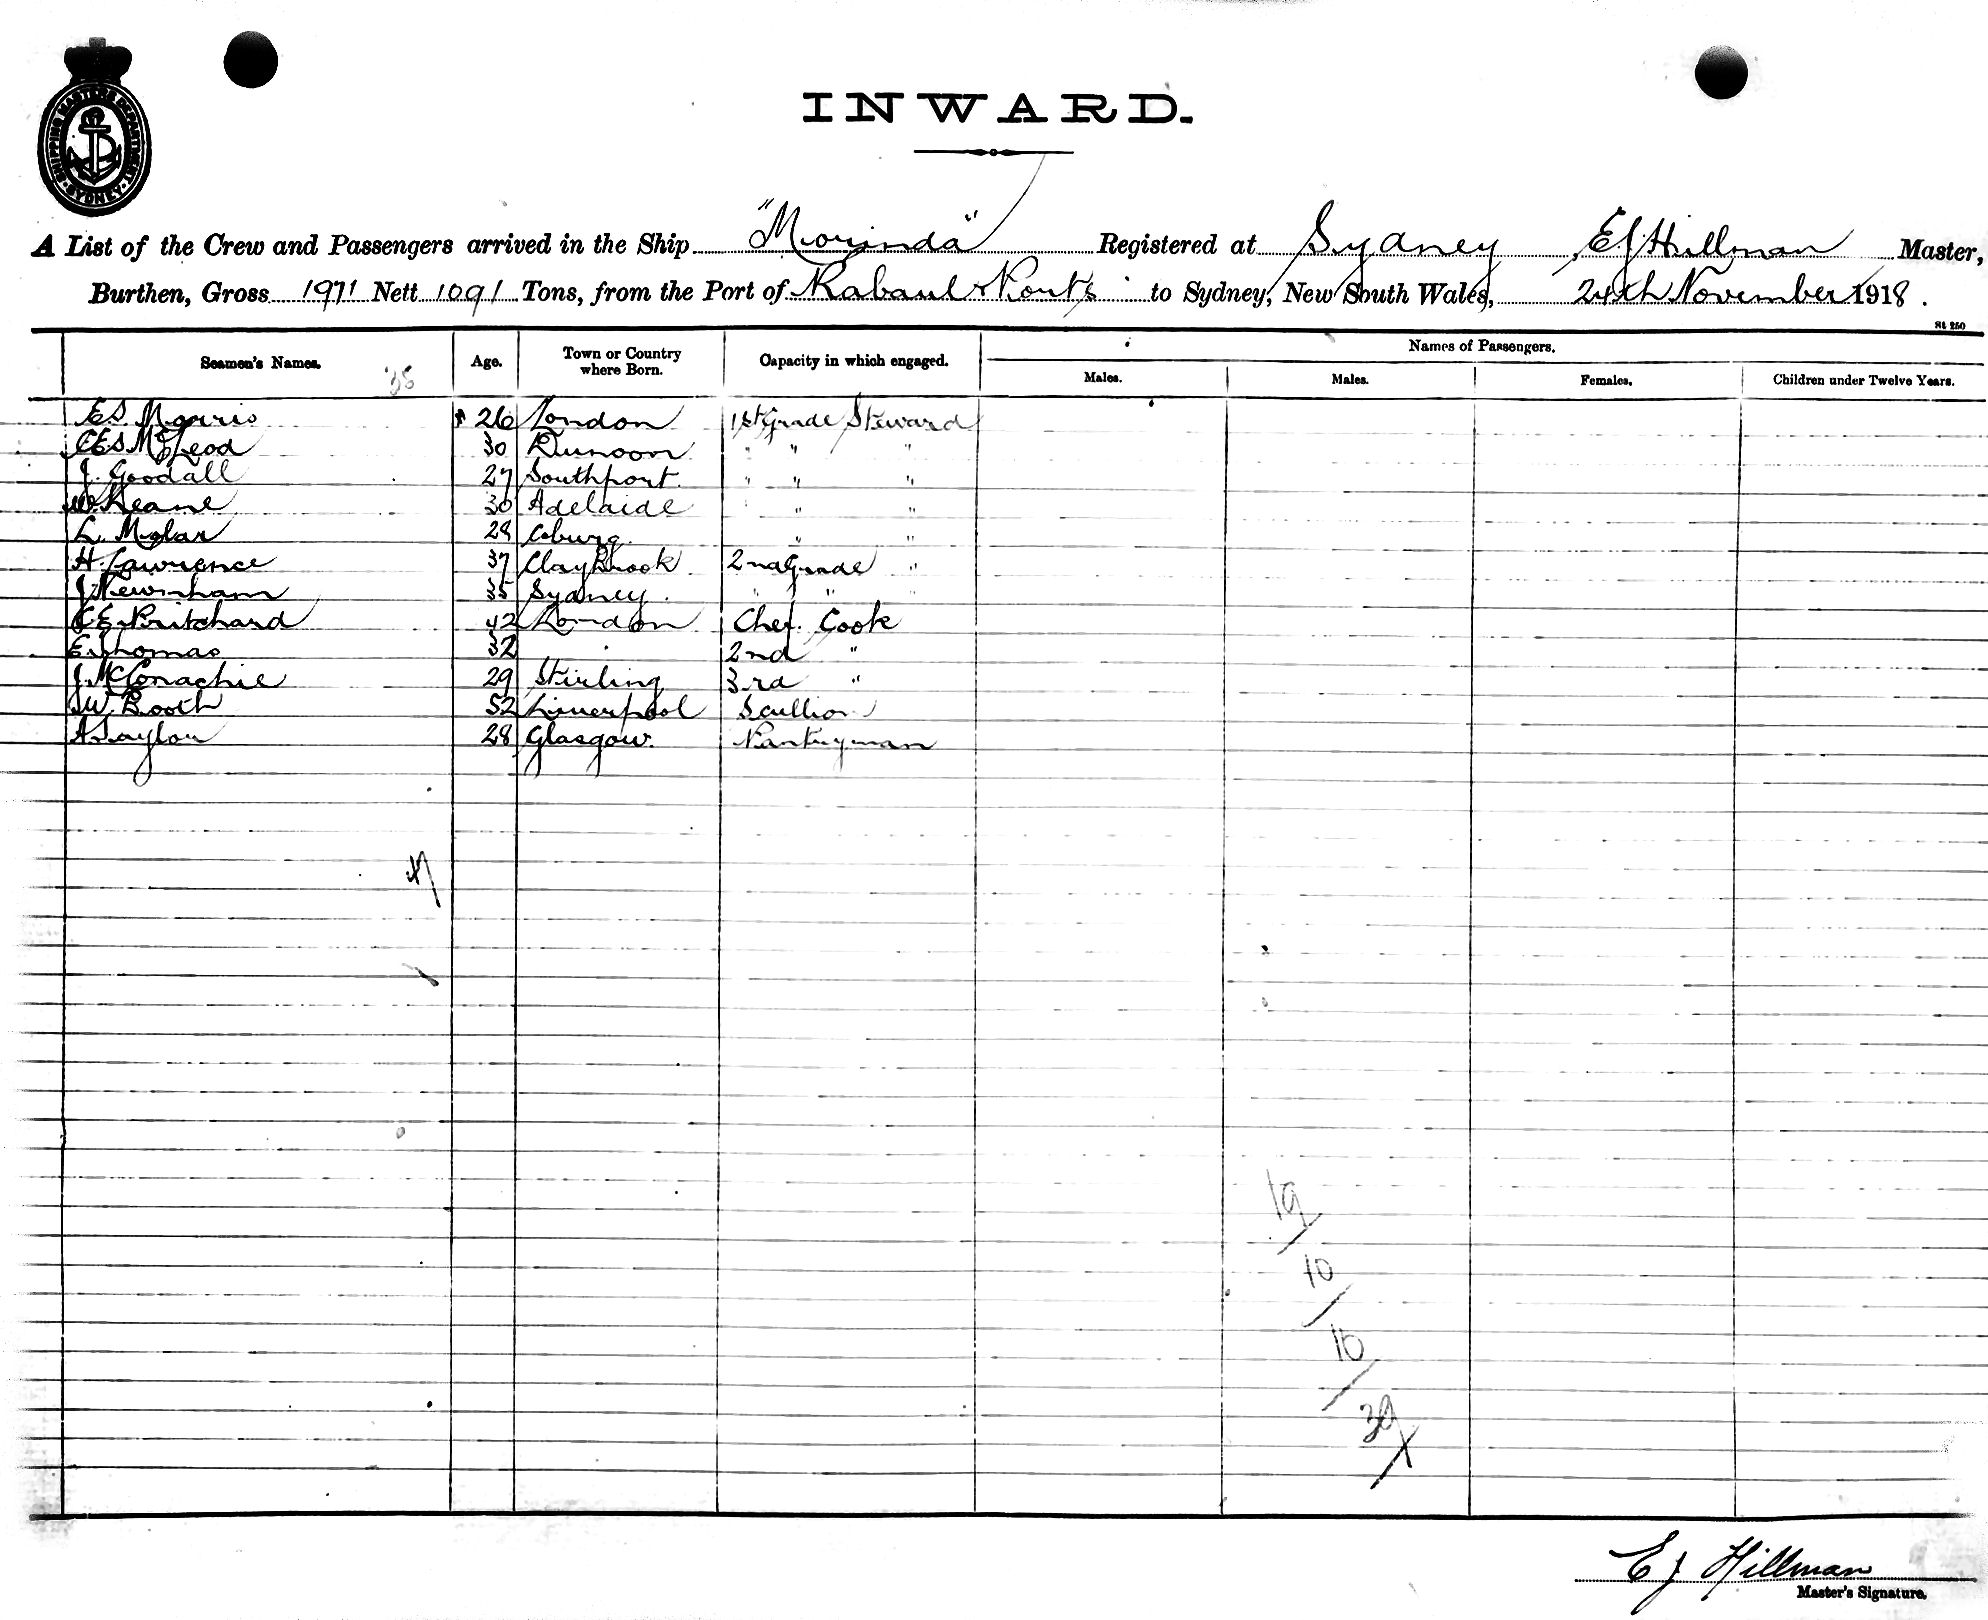 SHIPPING MASTERS DEPARTMENT
SYDNEY
INWARD.
A List of the Crew and Passengers arrived in the Ship "Morinda" Registered at Sydney, E J Hillman Master,
Burthen, Gross 1971 Nett 1091 Tons, from the Port of Rabaul & Ports to Sydney, New South Wales, 24th November 1918.
St 250
Names of Passengers.
Seamen's Names. 35 Age. Town or Country where Born. Capacity in which engaged. Males. Males. Females. Children under Twelve Years.
E S Morris 26 London 1st Grade Steward
C E S McLeod 30 Dunoon " " "
J. Goodall 27 Southport " " "
W Keane 30 Adelaide " "
L. Mylar 28 Coburg " "
H. Lawrence 37 Claybrook 2nd Grade "
J Newnham 35 Sydney. " " "
C E Pritchard 42 London Chef. Cook
E. Thomas 32 2nd "
J. McConachie 29 Stirling 3rd "
W. Booth 52 Liverpool Scullion
A Taylor 28 Glasgow. Pantryman
19
10
10
39
E J Hillman
Master's Signature.